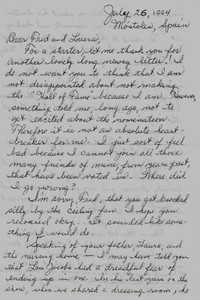 July 26, 1994
Móstoles, Spain
Dear Fred and Laura,
For a starter, let me thank you for
another lovely long newsy letter! I
do not want you to think that I am
not disappointed about not making
the "Hall of Fame" because I am. However,
something told me, long ago, not to
get excited about the nomination.
Therefore it is not an absolute heart-
breaker for me. I just sort of feel
bad because I cannot join all those
many friends of mine, from years past,
that have been voted in. Where did
I go wrong?
I'm sorry, Fred, that you got knocked
silly by the ceiling fan. I hope you
reloaded okay. It sounded like some-
thing I would do.
Speaking of your father, Laura, and
the nursing home — I may have told you
that Lou Jacobs had a dreadful fear of
ending up in one. In his last years on the
show, when we shared a dressing room, he